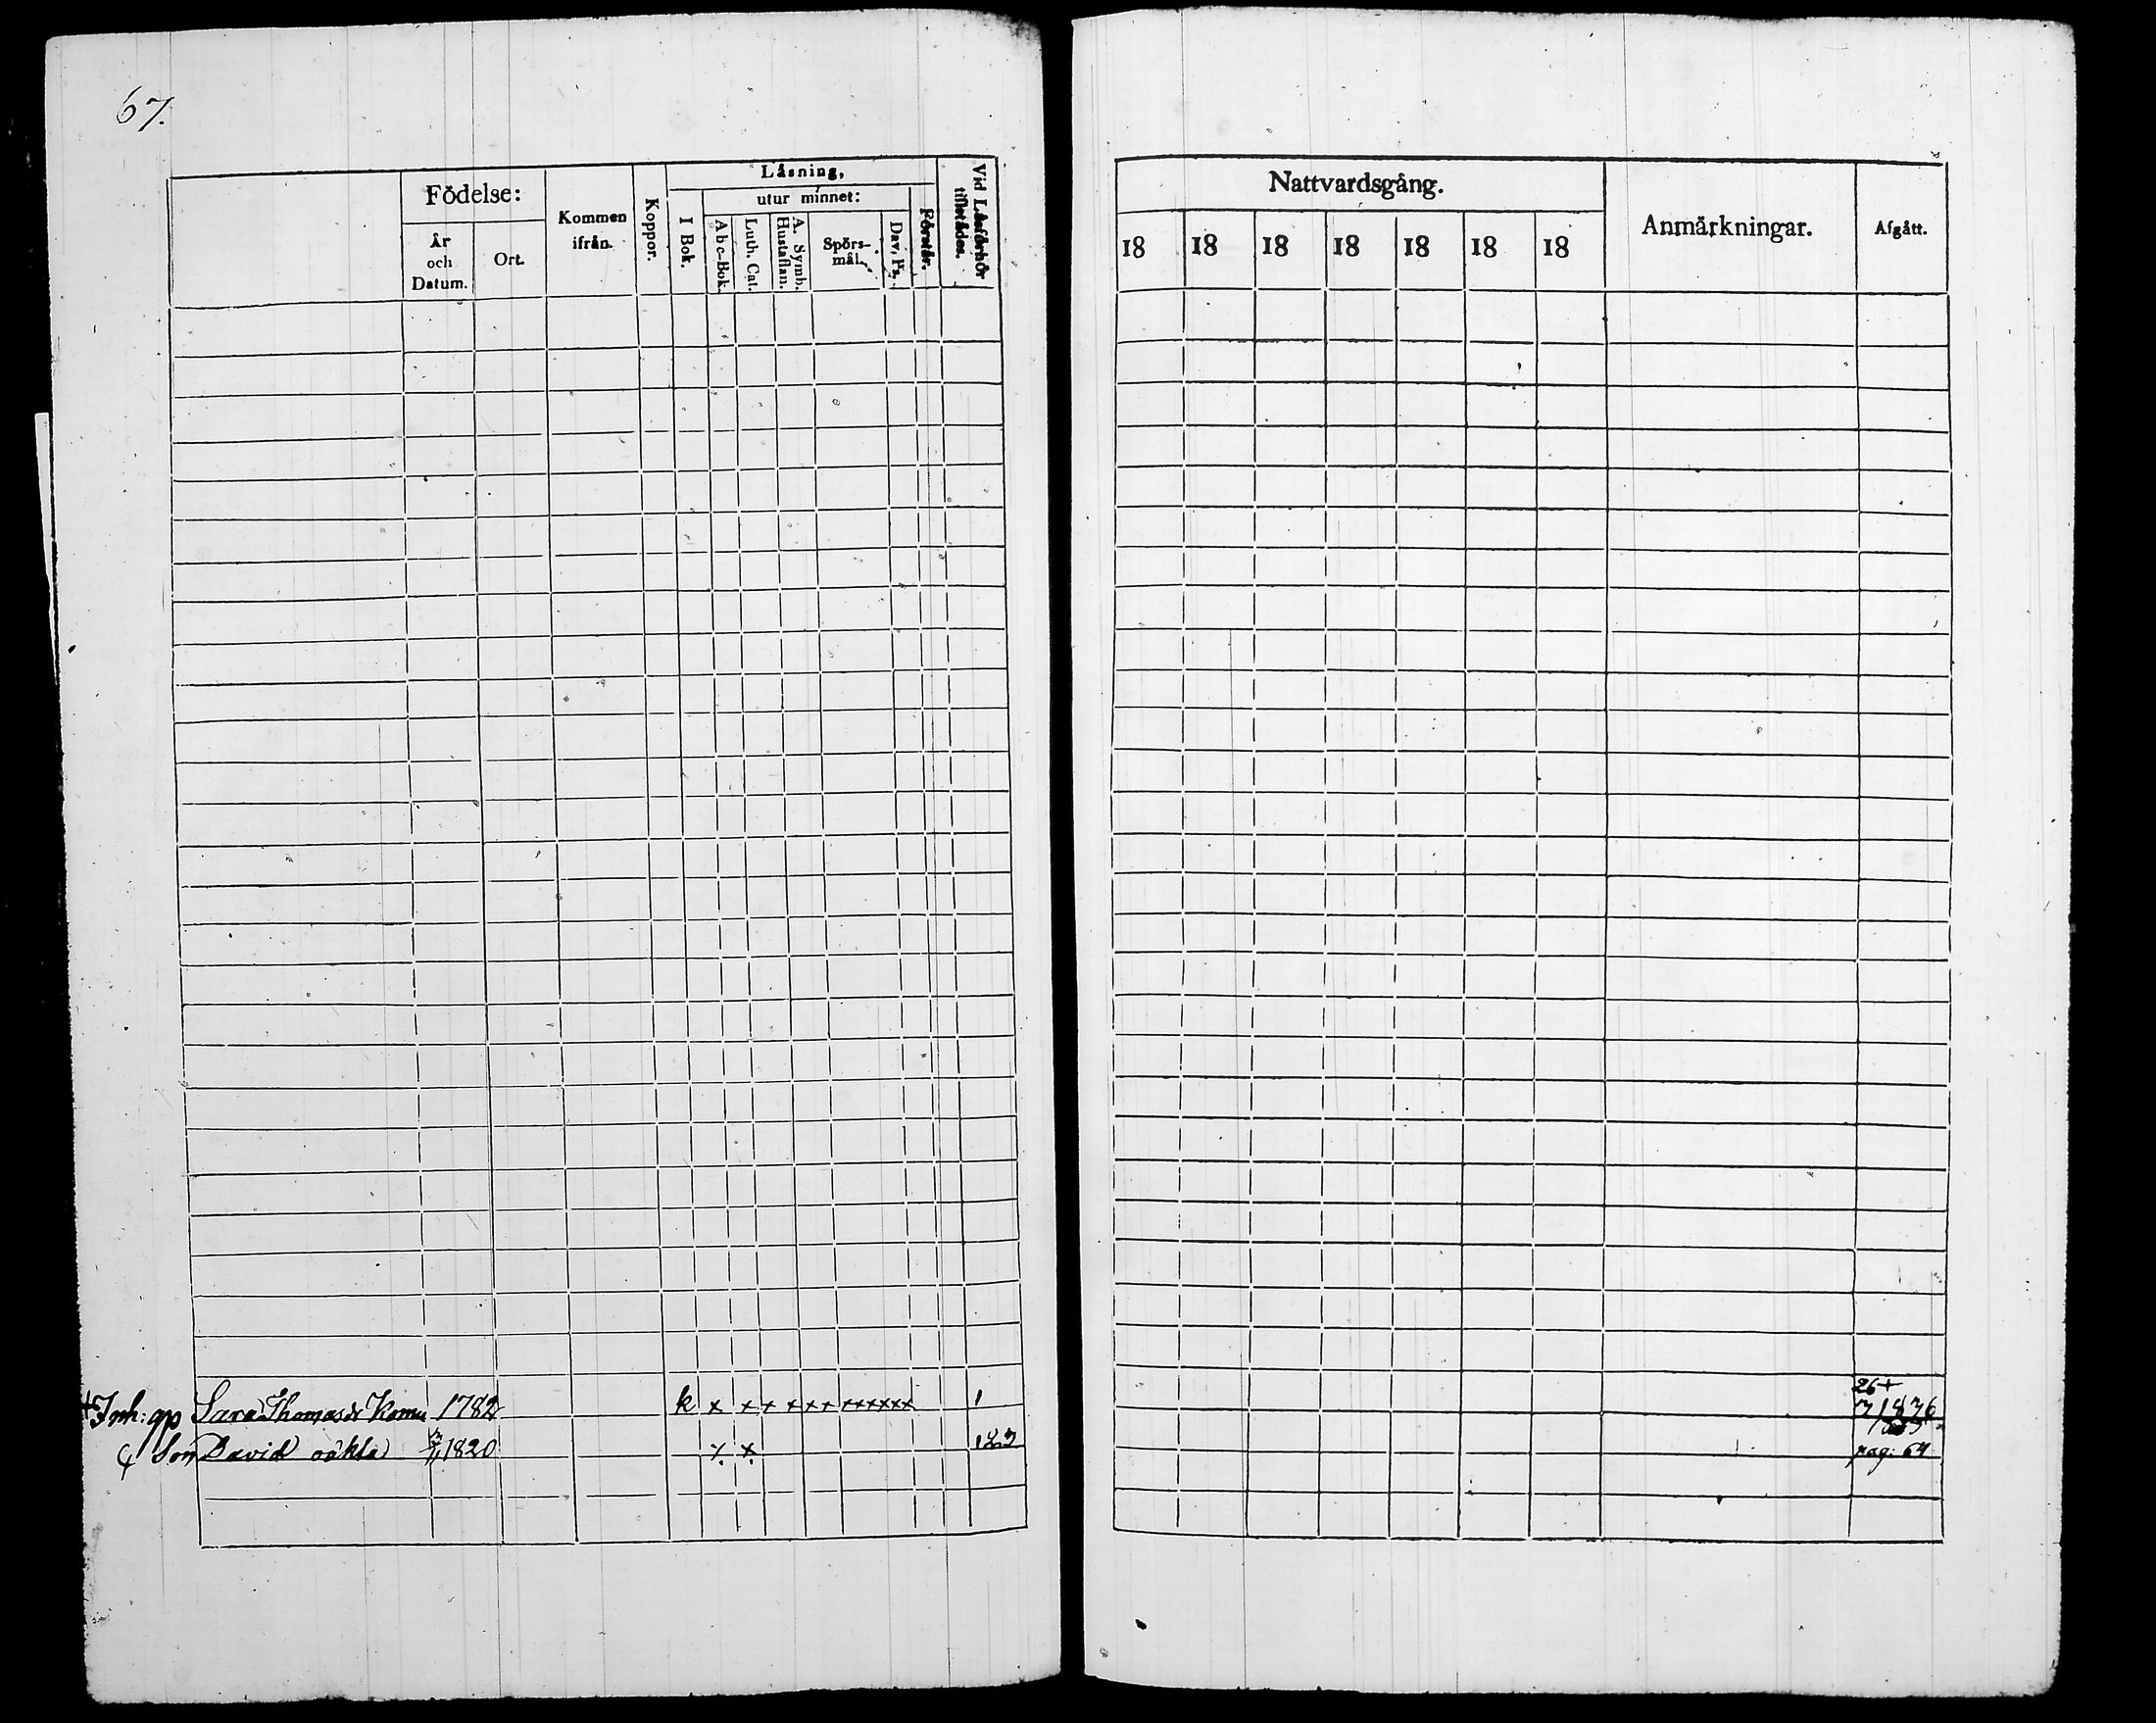 67.
Läsning,
Födelse:
utur minnet:
Kommen ifrån.
Koppor.
I Bok.
Abc-Bok.
Luth. Cat.
A. Symb. Hustaflan.
Spörs-mål.
Dav. Ps.
Förstår.
Vid Läsförhör tillstådes.
År och Datum.
Ort.
Nattvardsgång.
Anmärkningar.
Afgått.
18 18 18 18 18 18 18
26 +
+ Inh: gp Sara Thomasdr 1782 k x x x x x x x x x x x x 1 7 1836
Son David oäkta 1820 x x 123 pag: 64